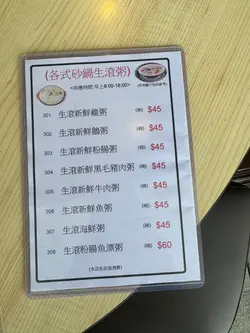 (各式砂鍋生滾粥)
<供應時間:早上8:00-18:00>
301 生滾新鮮雞粥 (碗) $45
302 生滾新鮮鵝粥 (碗) $45
303 生滾新鮮粉腸粥 (碗) $45
304 生滾新鮮黑毛豬肉粥 (碗) $45
305 生滾新鮮牛肉粥 (碗) $45
306 生滾新鮮魚粥 (碗) $45
307 生滾海鮮粥 (碗) $45
308 生滾粉腸魚潭粥 (碗) $60